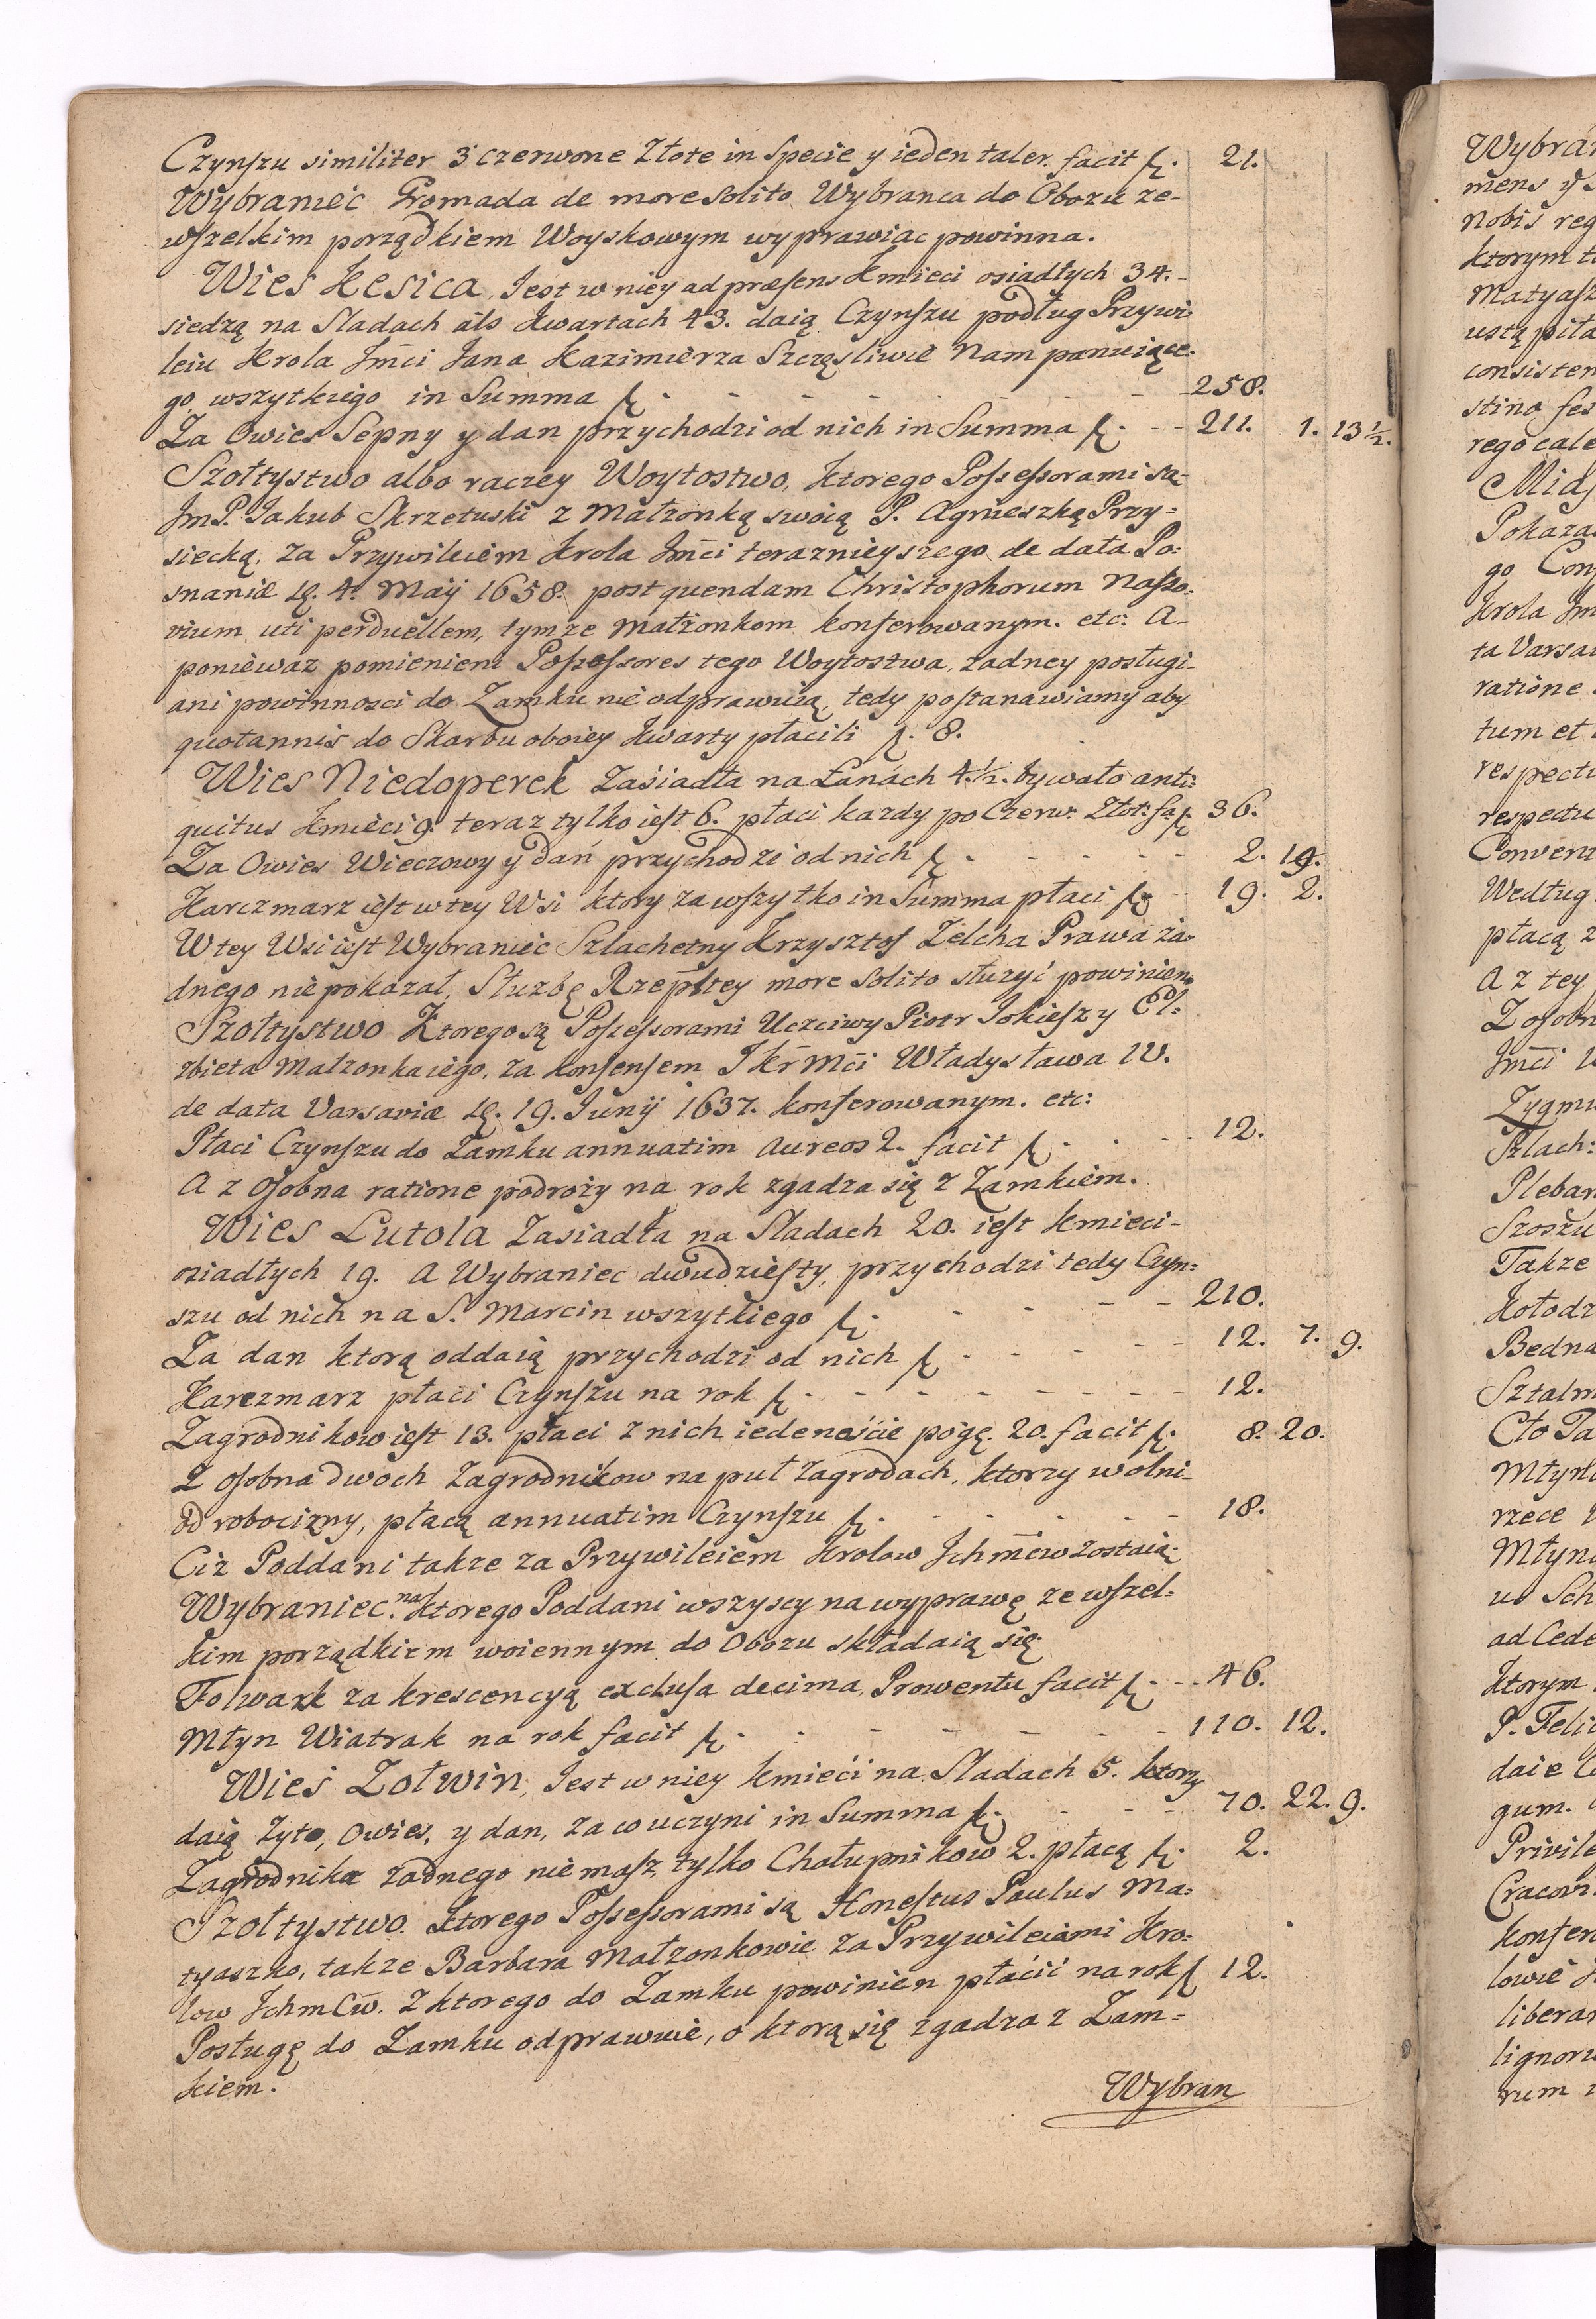 Czynszu similiter 3 czerwone Złote in Specie y ieden taler. facit f. 21.
Wybraniec Gromada de more solito Wybranca do Obozu ze-
wszelkim porządkiem Woyskowym wyprawiac powinna.
Wies Kesica, Jest w niey ad præsens Kmieci osiadłych 34.
siedzą na Sladach als Kwartach 43. daią Czynszu podług Przywi-
leiu Krola Jmci Jana Kazimierza Szczęsliwie Nam panuiące-
go wszytkiego in Summa f. - - - - - - 258.
Za Owies Sepny y dan przychodzi od nich in Summa f. - - 211. 1. 13½.
Szołtystwo albo raczey Woytostwo, ktorego Possessorami są
JmP. Jakub Skrzetuski z Małżonką swoią P. Agnieszką Przy=
siecką. za Przywileiem Krola Jmci teraznieyszego de data Po:
snaniæ 4. Maÿ 1658. post quendam Christophorum Nasso-
vium uti perduellem, tymze Małżonkom konferowanym. etc: A-
poniewaz pomienieni Possessores tego Woytostwa, zadney posługi-
ani powinnosci do Zamku nie odprawuią, tedy postanawiamy aby
quotannis do Skarbu oboiey Kwarty płacili f. 8.
Wies Niedoperek Zasiadła na Łanach 4.½. bywało anti:
quitus Kmieci 9. teraz tylko iest 6. płaci kazdy po Czerw: Złot: f. 36.
Za Owies Wieczowy y dań przychodzi od nich f. - - - - - 2. 19.
Karczmarz iest w tey Wsi ktory za wszytko in Summa płaci f. - - 19. 2.
W tey Wsi iest Wybraniec Szlachetny Krzysztof Zelcha Prawa za-
dnego nie pokazał, Słuzbę Rzepltey more solito słuzyć powinien.
Szołtystwo Ktorego są Possessorami Uczciwy Piotr Jokiesz y El:
zbieta Małzonka iego, za konsensem J Kr Mci Władysława IV.
de data Varsaviæ 19. Junÿ 1637. konferowanym. etc:
Płaci Czynszu do Zamku annuatim aureos 2. facit f. - - - 12.
A z osobna ratione podroży na rok zgadza się z Zamkiem.
Wies Lutola Zasiadła na Sladach 20. iest kmieci-
osiadłych 19. A Wybraniec dwudziesty, przychodzi tedy Czyn=
szu od nich na S. Marcin wszytkiego f. - - - - 210.
Za dan ktorą oddaią przychodzi od nich f. - - - - - 12. 7. 9.
Karczmarz płaci Czynszu na rok f. - - - - - - - 12.
Zagrodnikow iest 13. płaci z nich iedenaście po gę. 20. facit f. 8. 20.
Z osobna dwoch Zagrodnikow na puł zagrodach, ktorzy wolni-
od robocizny, płacą annuatim Czynszu f. - - - - - 18.
Ciż Poddani takze za Przywileiem Krolow Jchmcw zostaią.
Wybraniec. na ktorego Poddani wszyscy na wyprawę ze wszel-
kim porządkiem woiennym do Obozu składaią się.
Folwark za krescencyą exclusa decima, Prowentu facit f. - - 46.
Młyn Wiatrak na rok facit f. - - - - - - 110. 12.
Wies Zołwin, Jest w niey kmieći na Sladach 5. ktorzy
daią Zyto, Owies, y dan, za co uczyni in Summa f. - - - 70. 22. 9.
Zagrodnika zadnego nie masz, tylko Chałupnikow 2. płacą f. 2.
Szołtystwo. ktorego Possessorami są Honestus Paulus Ma=
tyaszko, takze Barbara Małzonkowie za Przywileiami Kro-
low Jchm Cw. z ktorego do Zamku powinien płacić na rok f. 12.
Posługę do Zamku odprawuie, o ktorą się zgadza z Zam=
kiem.
Wybran
mens
Nobis reg
ktorym
Matyasz
consisten
rego cale
Pokaza
go
Krola Jm
ta Varsa
ratione
tum et
respectu
respectu
Convent
Według
płacą z
A z tey
Z osobn
Jmci
Zygmu
Szlach:
Pleban
Także
Kołodz
Bedna
rzece
ktorym
daie
gum.
Privile
Cracovi
konfer
lowie
liberam
lignoru
rum